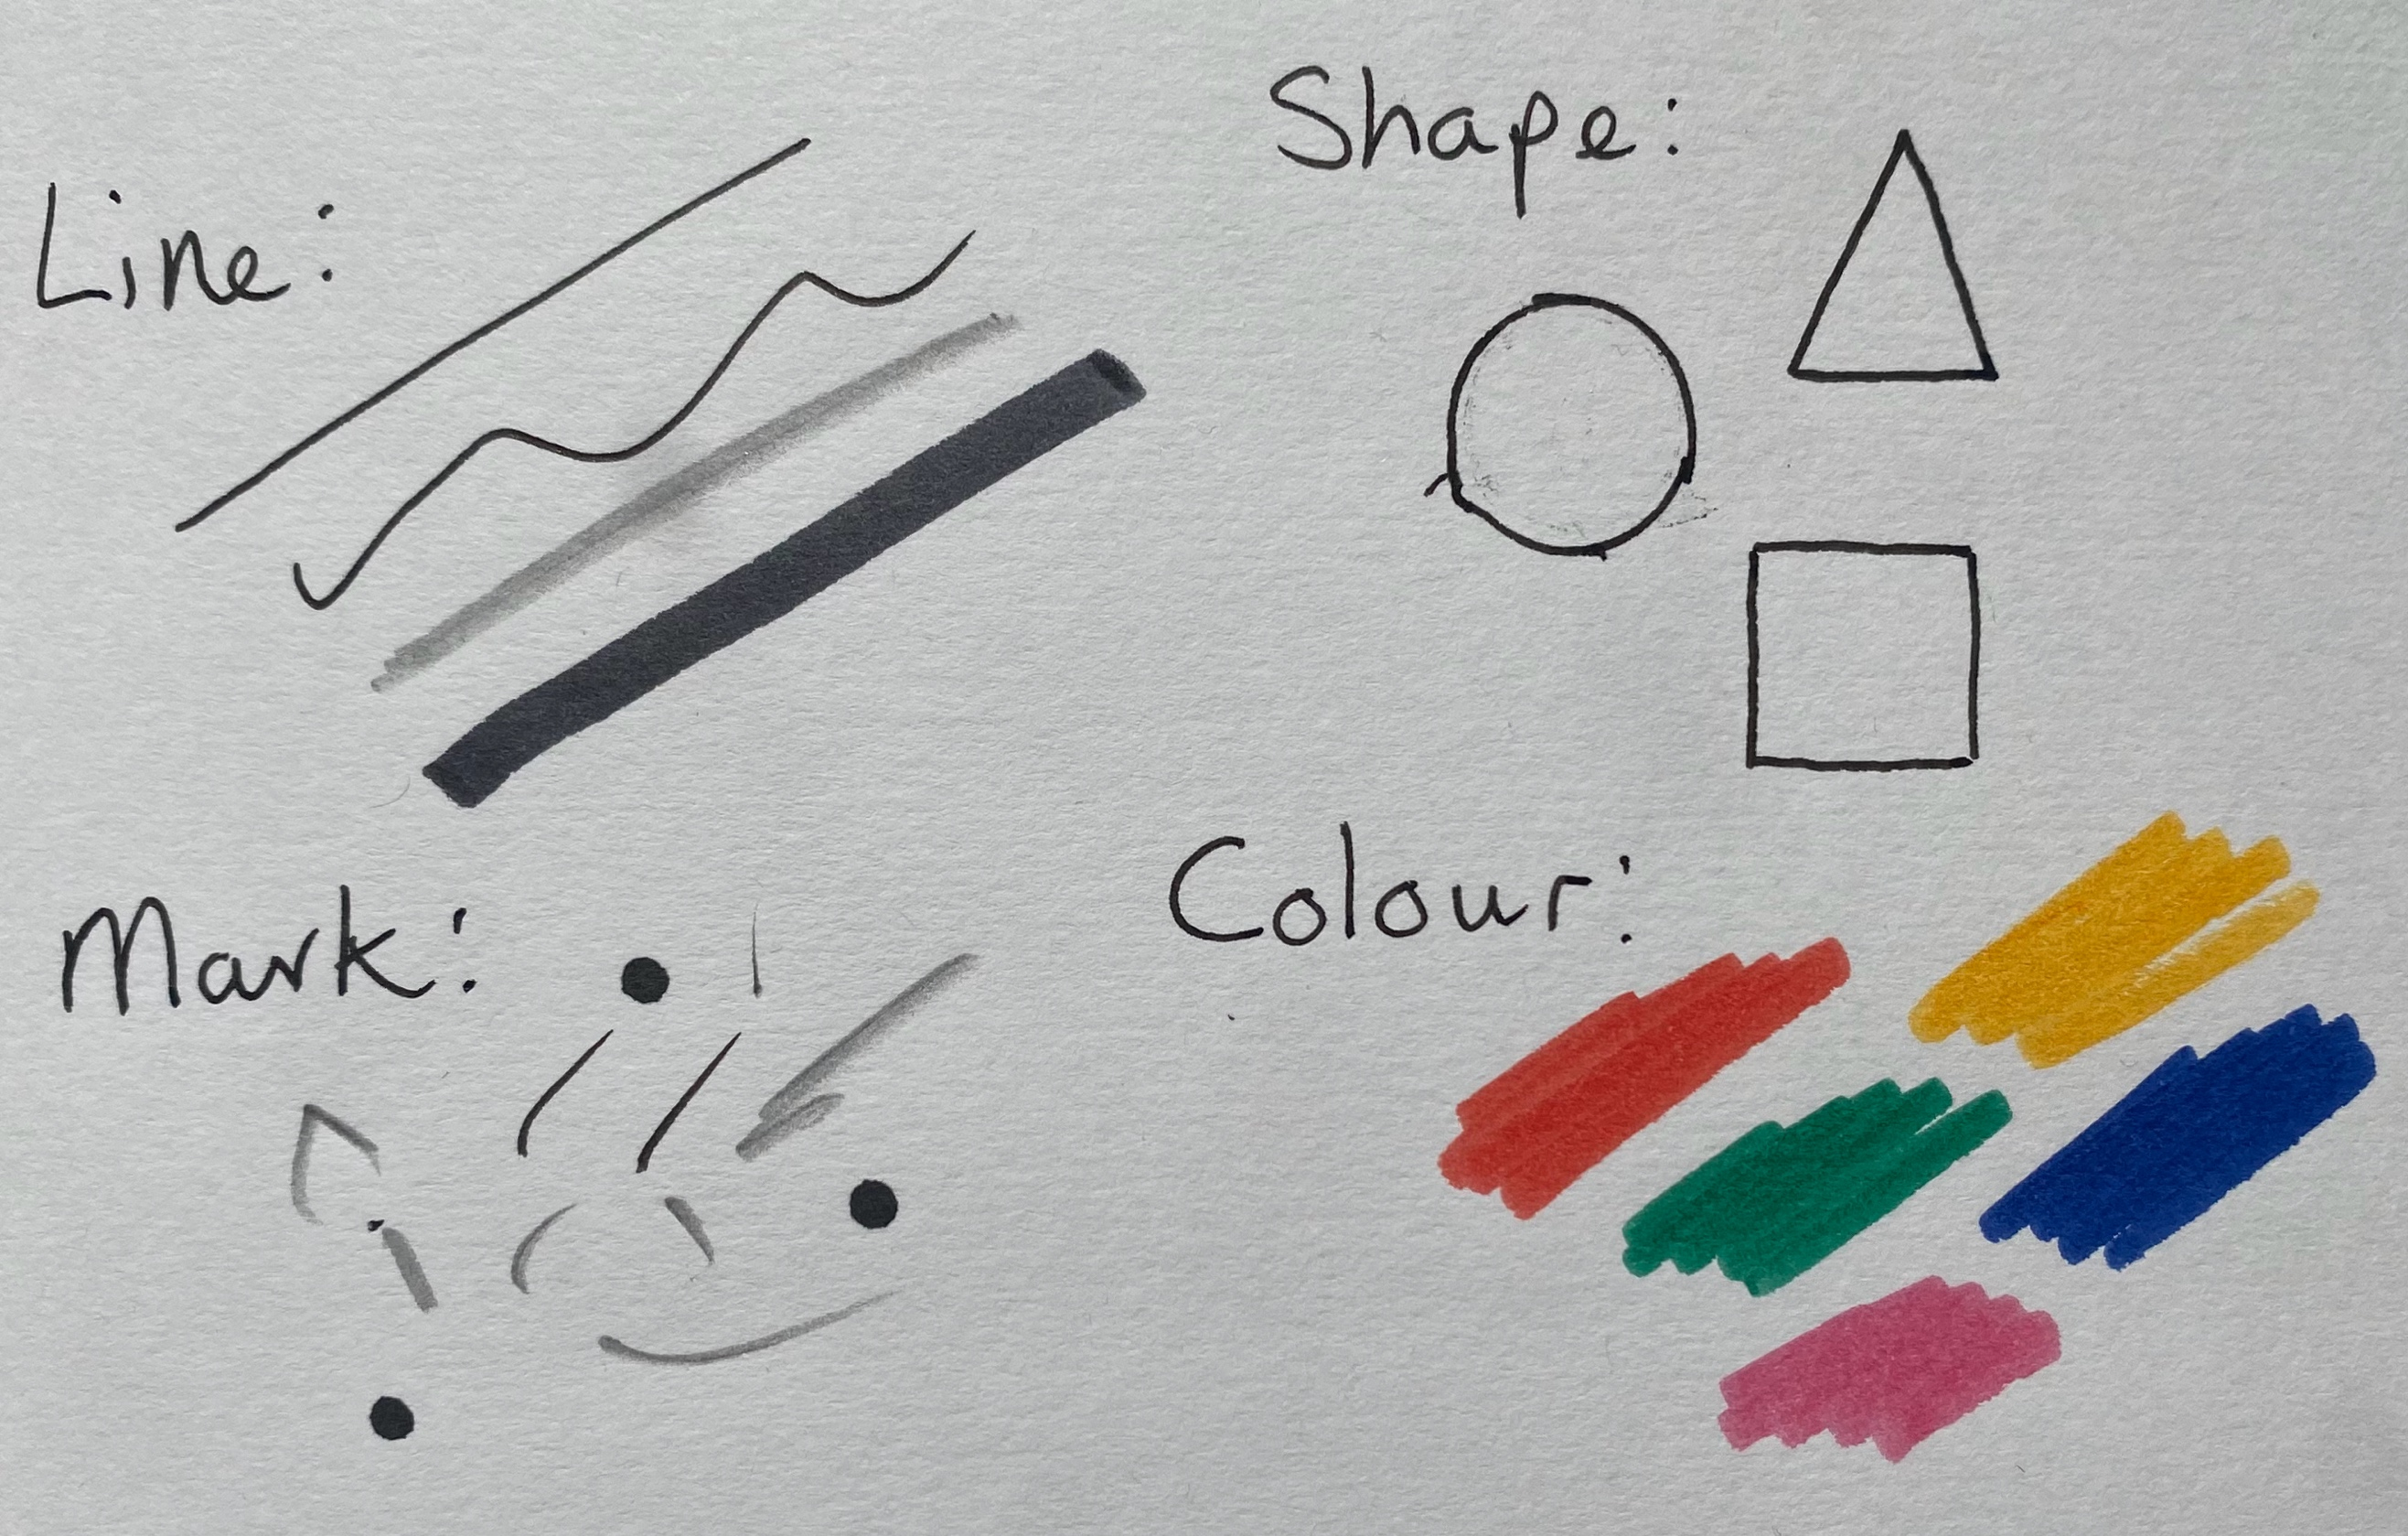 Line:
Shape:
Mark:
Colour: